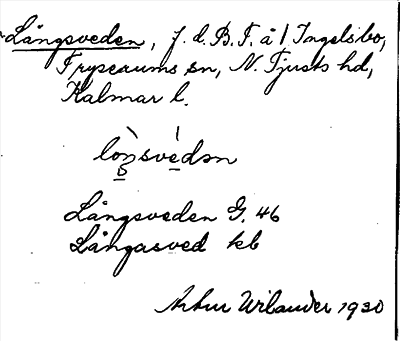 Långsveden, f. d. B. T. å 1 Ingelsbo,
Tryserums sn, N. Tjusts hd,
Kalmar l.
Långsveden G. 46
Långasved kb
Artur Wilander 1930